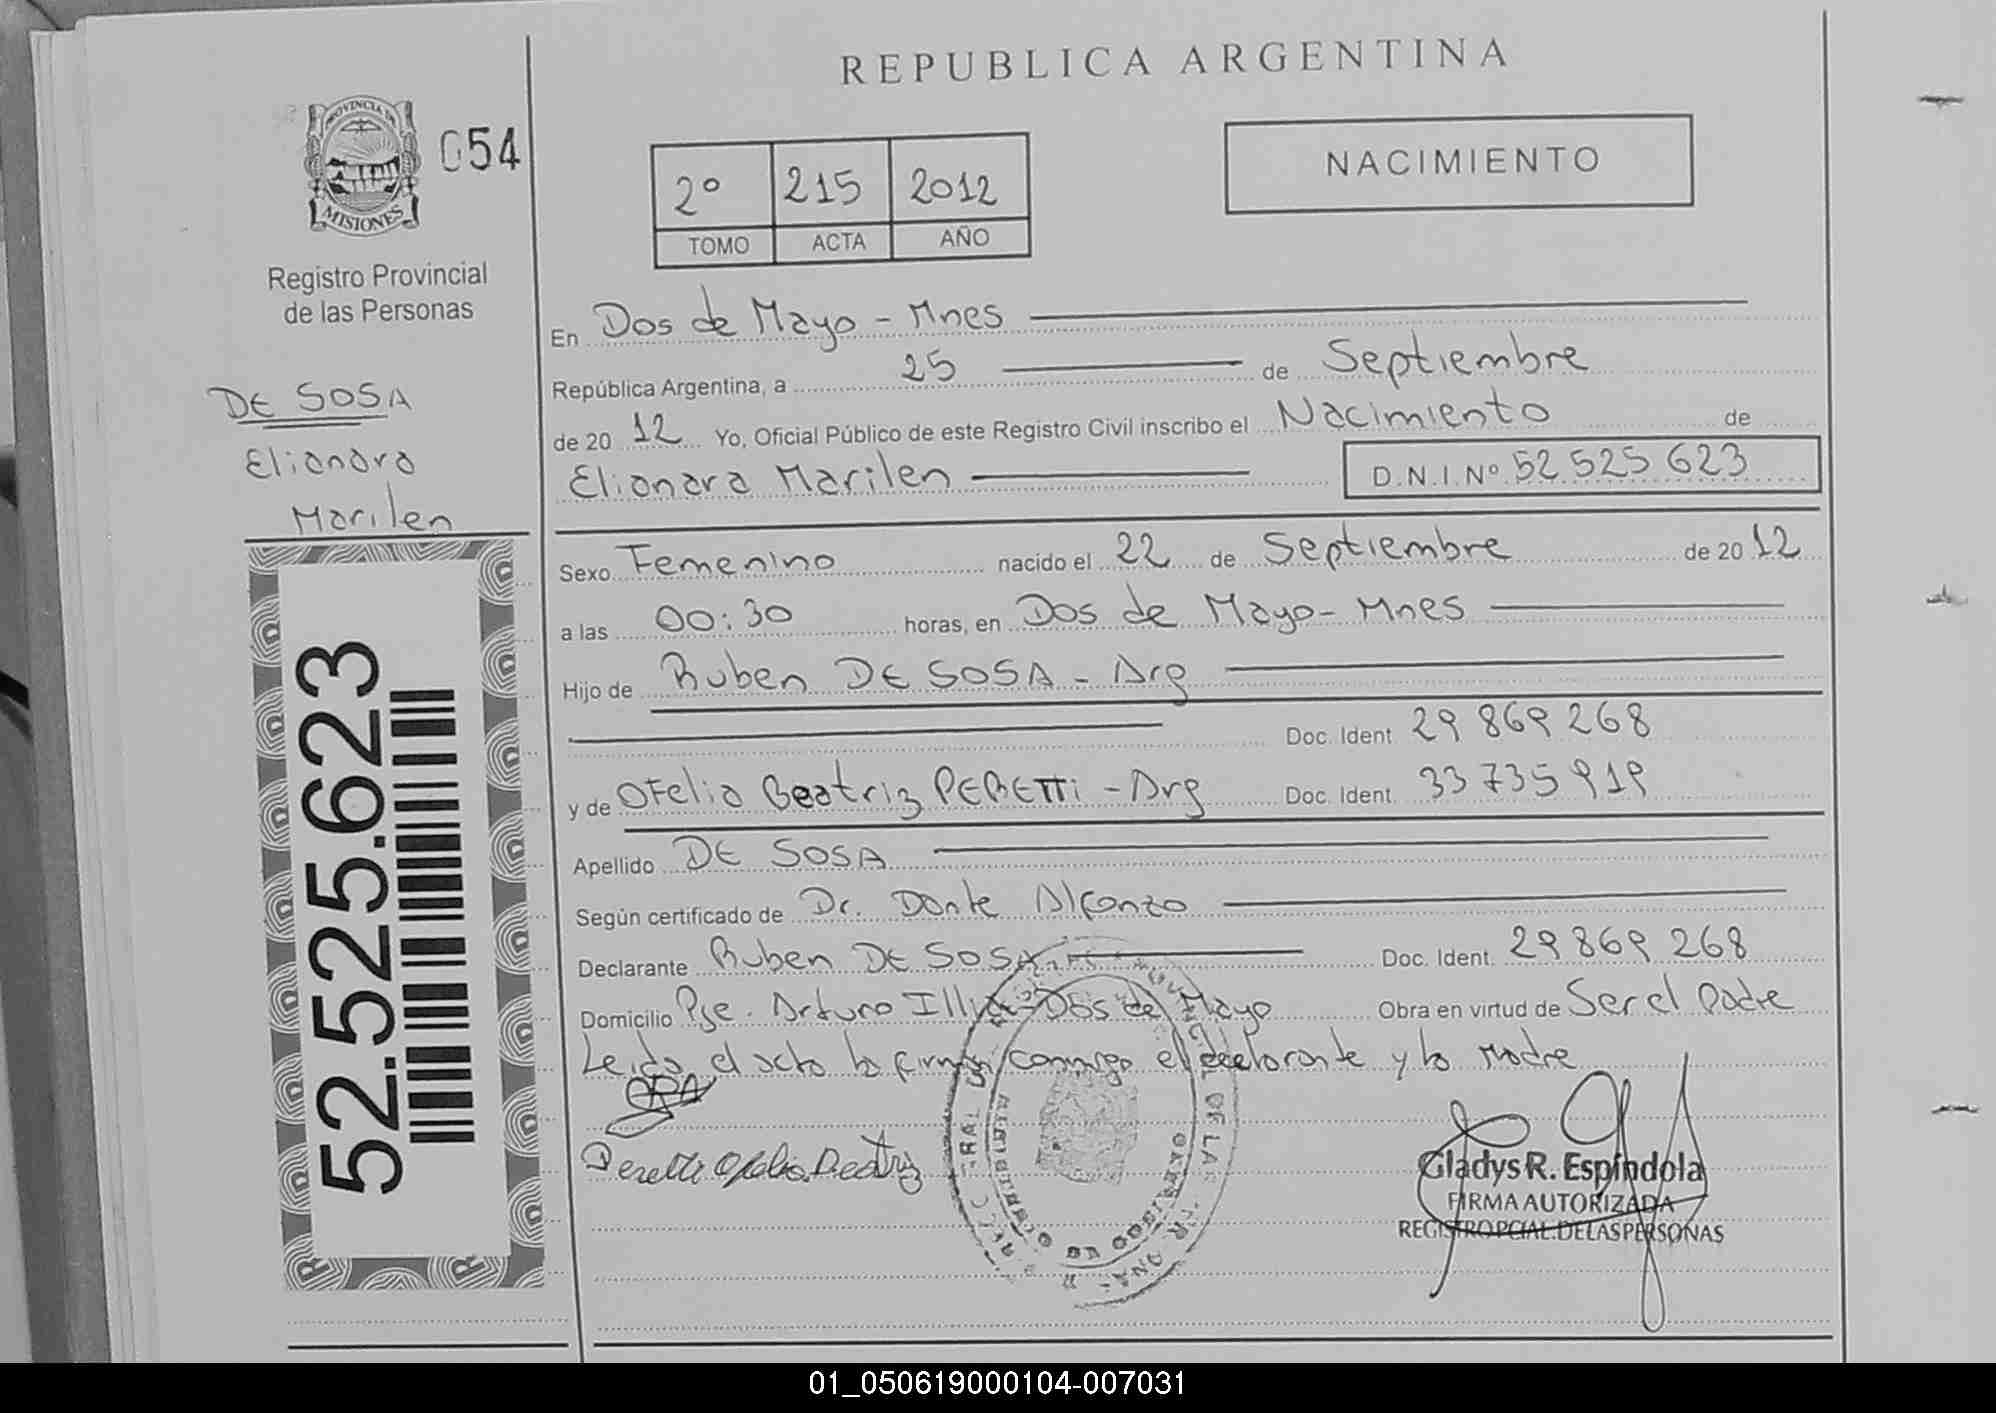 REPUBLICA ARGENTINA
PROVINCIA DE
MISIONES
054
Registro Provincial
de las Personas
2º 215 2012
TOMO ACTA AÑO
NACIMIENTO
DE SOSA
Elianara
Marilen
52.525.623
En Dos de Mayo - Mnes
República Argentina, a 25 de Septiembre
de 20 12 Yo, Oficial Público de este Registro Civil inscribo el Nacimiento de
Elianara Marilen D.N.I. Nº 52 525 623
Sexo Femenino nacido el 22 de Septiembre de 20 12
a las 00:30 horas, en Dos de Mayo - Mnes
Hijo de Ruben DE SOSA - Arg
Doc. Ident. 29 869 268
y de Ofelia Beatriz PERETTi - Arg Doc. Ident. 33 735 919
Apellido DE SOSA
Según certificado de Dr. Dante Alfonzo
Declarante Ruben DE SOSA Doc. Ident. 29 869 268
Domicilio Pje. Arturo Illia - Dos de Mayo Obra en virtud de Ser el Padre
Leida el acta la firman conmigo el declarante y la Madre
Peretti Ofelia Beatriz
Gladys R. Espíndola
FIRMA AUTORIZADA
REGISTRO PCIAL. DE LAS PERSONAS
01_050619000104-007031